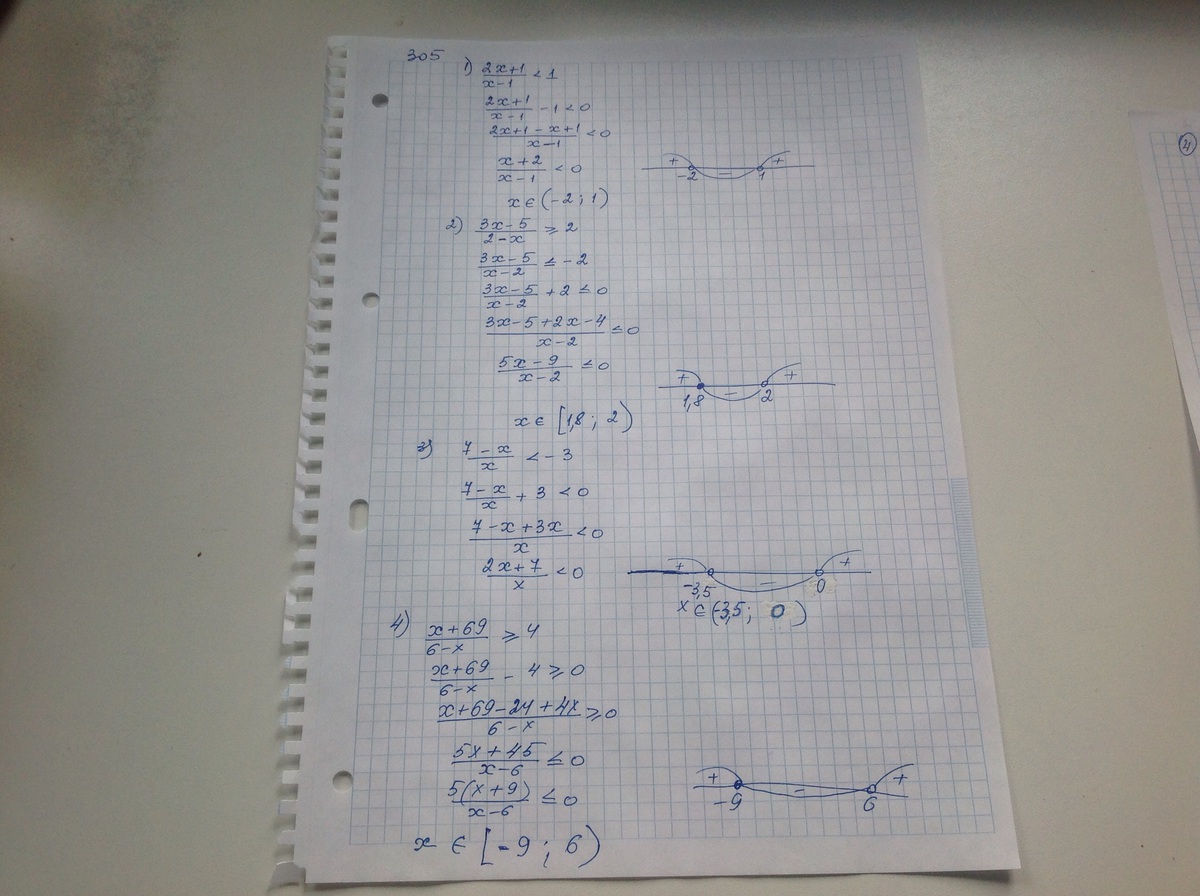 305
1) (2x+1)/(x-1) < 1
(2x+1)/(x-1) - 1 < 0
(2x+1-x+1)/(x-1) < 0
(x+2)/(x-1) < 0
+ - +
-2 1
x ∈ (-2; 1)
2) (3x-5)/(2-x) ⩾ 2
(3x-5)/(x-2) ≤ -2
(3x-5)/(x-2) + 2 ≤ 0
(3x-5+2x-4)/(x-2) ≤ 0
(5x-9)/(x-2) ≤ 0
+ - +
1,8 2
x ∈ [1,8; 2)
3) (7-x)/x < -3
(7-x)/x + 3 < 0
(7-x+3x)/x < 0
(2x+7)/x < 0
+ - +
-3,5 0
x ∈ (-3,5; 0)
4) (x+69)/(6-x) ⩾ 4
(x+69)/(6-x) - 4 ⩾ 0
(x+69-24+4x)/(6-x) ⩾ 0
(5x+45)/(x-6) ≤ 0
5(x+9)/(x-6) ≤ 0
+ - +
-9 6
x ∈ [-9; 6)
4